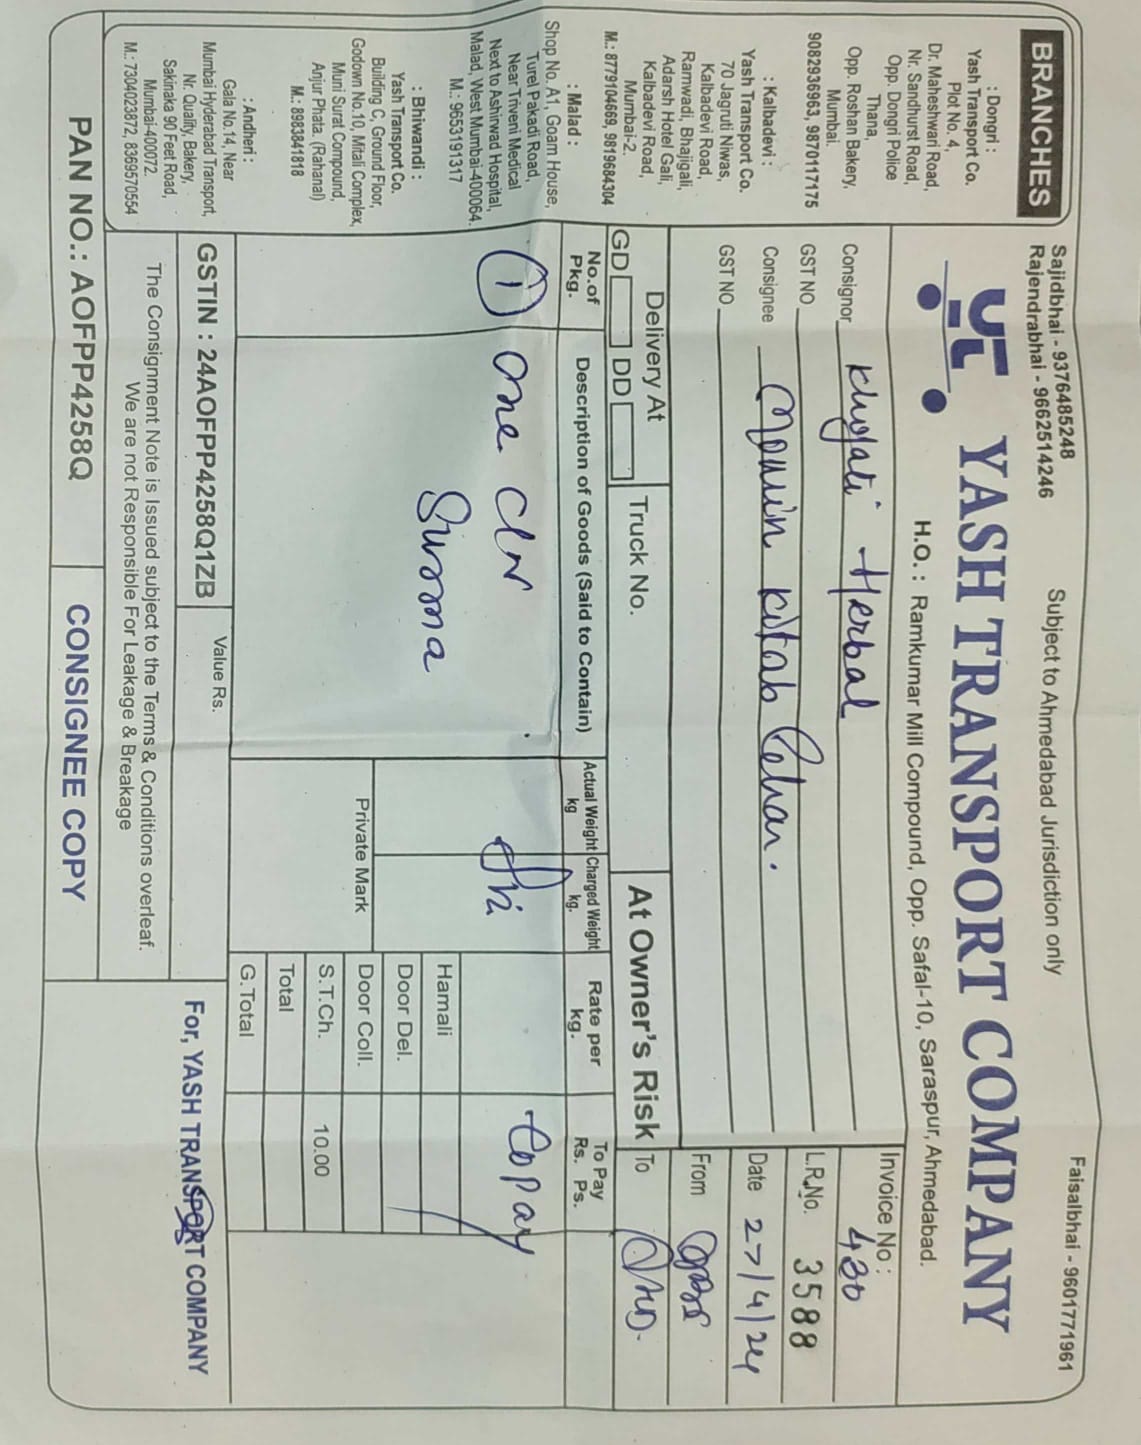 Sajidbhai - 9376485248
Rajendrabhai - 9662514246
Subject to Ahmedabad Jurisdiction only
Faisalbhai - 9601771961
YASH TRANSPORT COMPANY
H.O. : Ramkumar Mill Compound, Opp. Safal-10, Saraspur, Ahmedabad.
BRANCHES
: Dongri :
Yash Transport Co.
Plot No. 4,
Dr. Maheshwari Road,
Nr. Sandhurst Road,
Opp. Dongri Police
Thana,
Opp. Roshan Bakery,
Mumbai.
9082936963, 9870117175
: Kalbadevi :
Yash Transport Co.
70 Jagruti Niwas,
Kalbadevi Road,
Ramwadi, Bhajigali,
Adarsh Hotel Gali,
Kalbadevi Road,
Mumbai-2.
M.: 8779104669, 9819684304
: Malad :
Shop No. A1, Goam House,
Turel Pakadi Road,
Near Triveni Medical
Next to Ashirwad Hospital,
Malad, West Mumbai-400064.
M.: 9653191317
: Bhiwandi :
Yash Transport Co.
Building C, Ground Floor,
Godown No.10, Mitali Complex,
Muni Surat Compound,
Anjur Phata. (Rahanal)
M.: 8983841818
: Andheri :
Gala No.14, Near
Mumbai Hyderabad Transport,
Nr. Quality, Bakery,
Sakinaka 90 Feet Road,
Mumbai-400072.
M.: 7304023872, 8369570554
Consignor Khyati Herbal
GST NO
Consignee Momin Kitab
GST NO
Invoice No : 430
L.R.No. 3588
Date 27/4/24
From
To
Delivery At
GD DD
Truck No.
At Owner's Risk
No.of Pkg.
Description of Goods (Said to Contain)
Actual Weight kg
Charged Weight kg.
Rate per kg.
To Pay Rs. Ps.
1 one
Surma
to pay
Private Mark
Hamali
Door Del.
Door Coll.
S.T.Ch. 10.00
Total
G.Total
GSTIN : 24AOFPP4258Q1ZB
Value Rs.
The Consignment Note is Issued subject to the Terms & Conditions overleaf.
We are not Responsible For Leakage & Breakage
For, YASH TRANSPORT COMPANY
PAN NO.: AOFPP4258Q
CONSIGNEE COPY